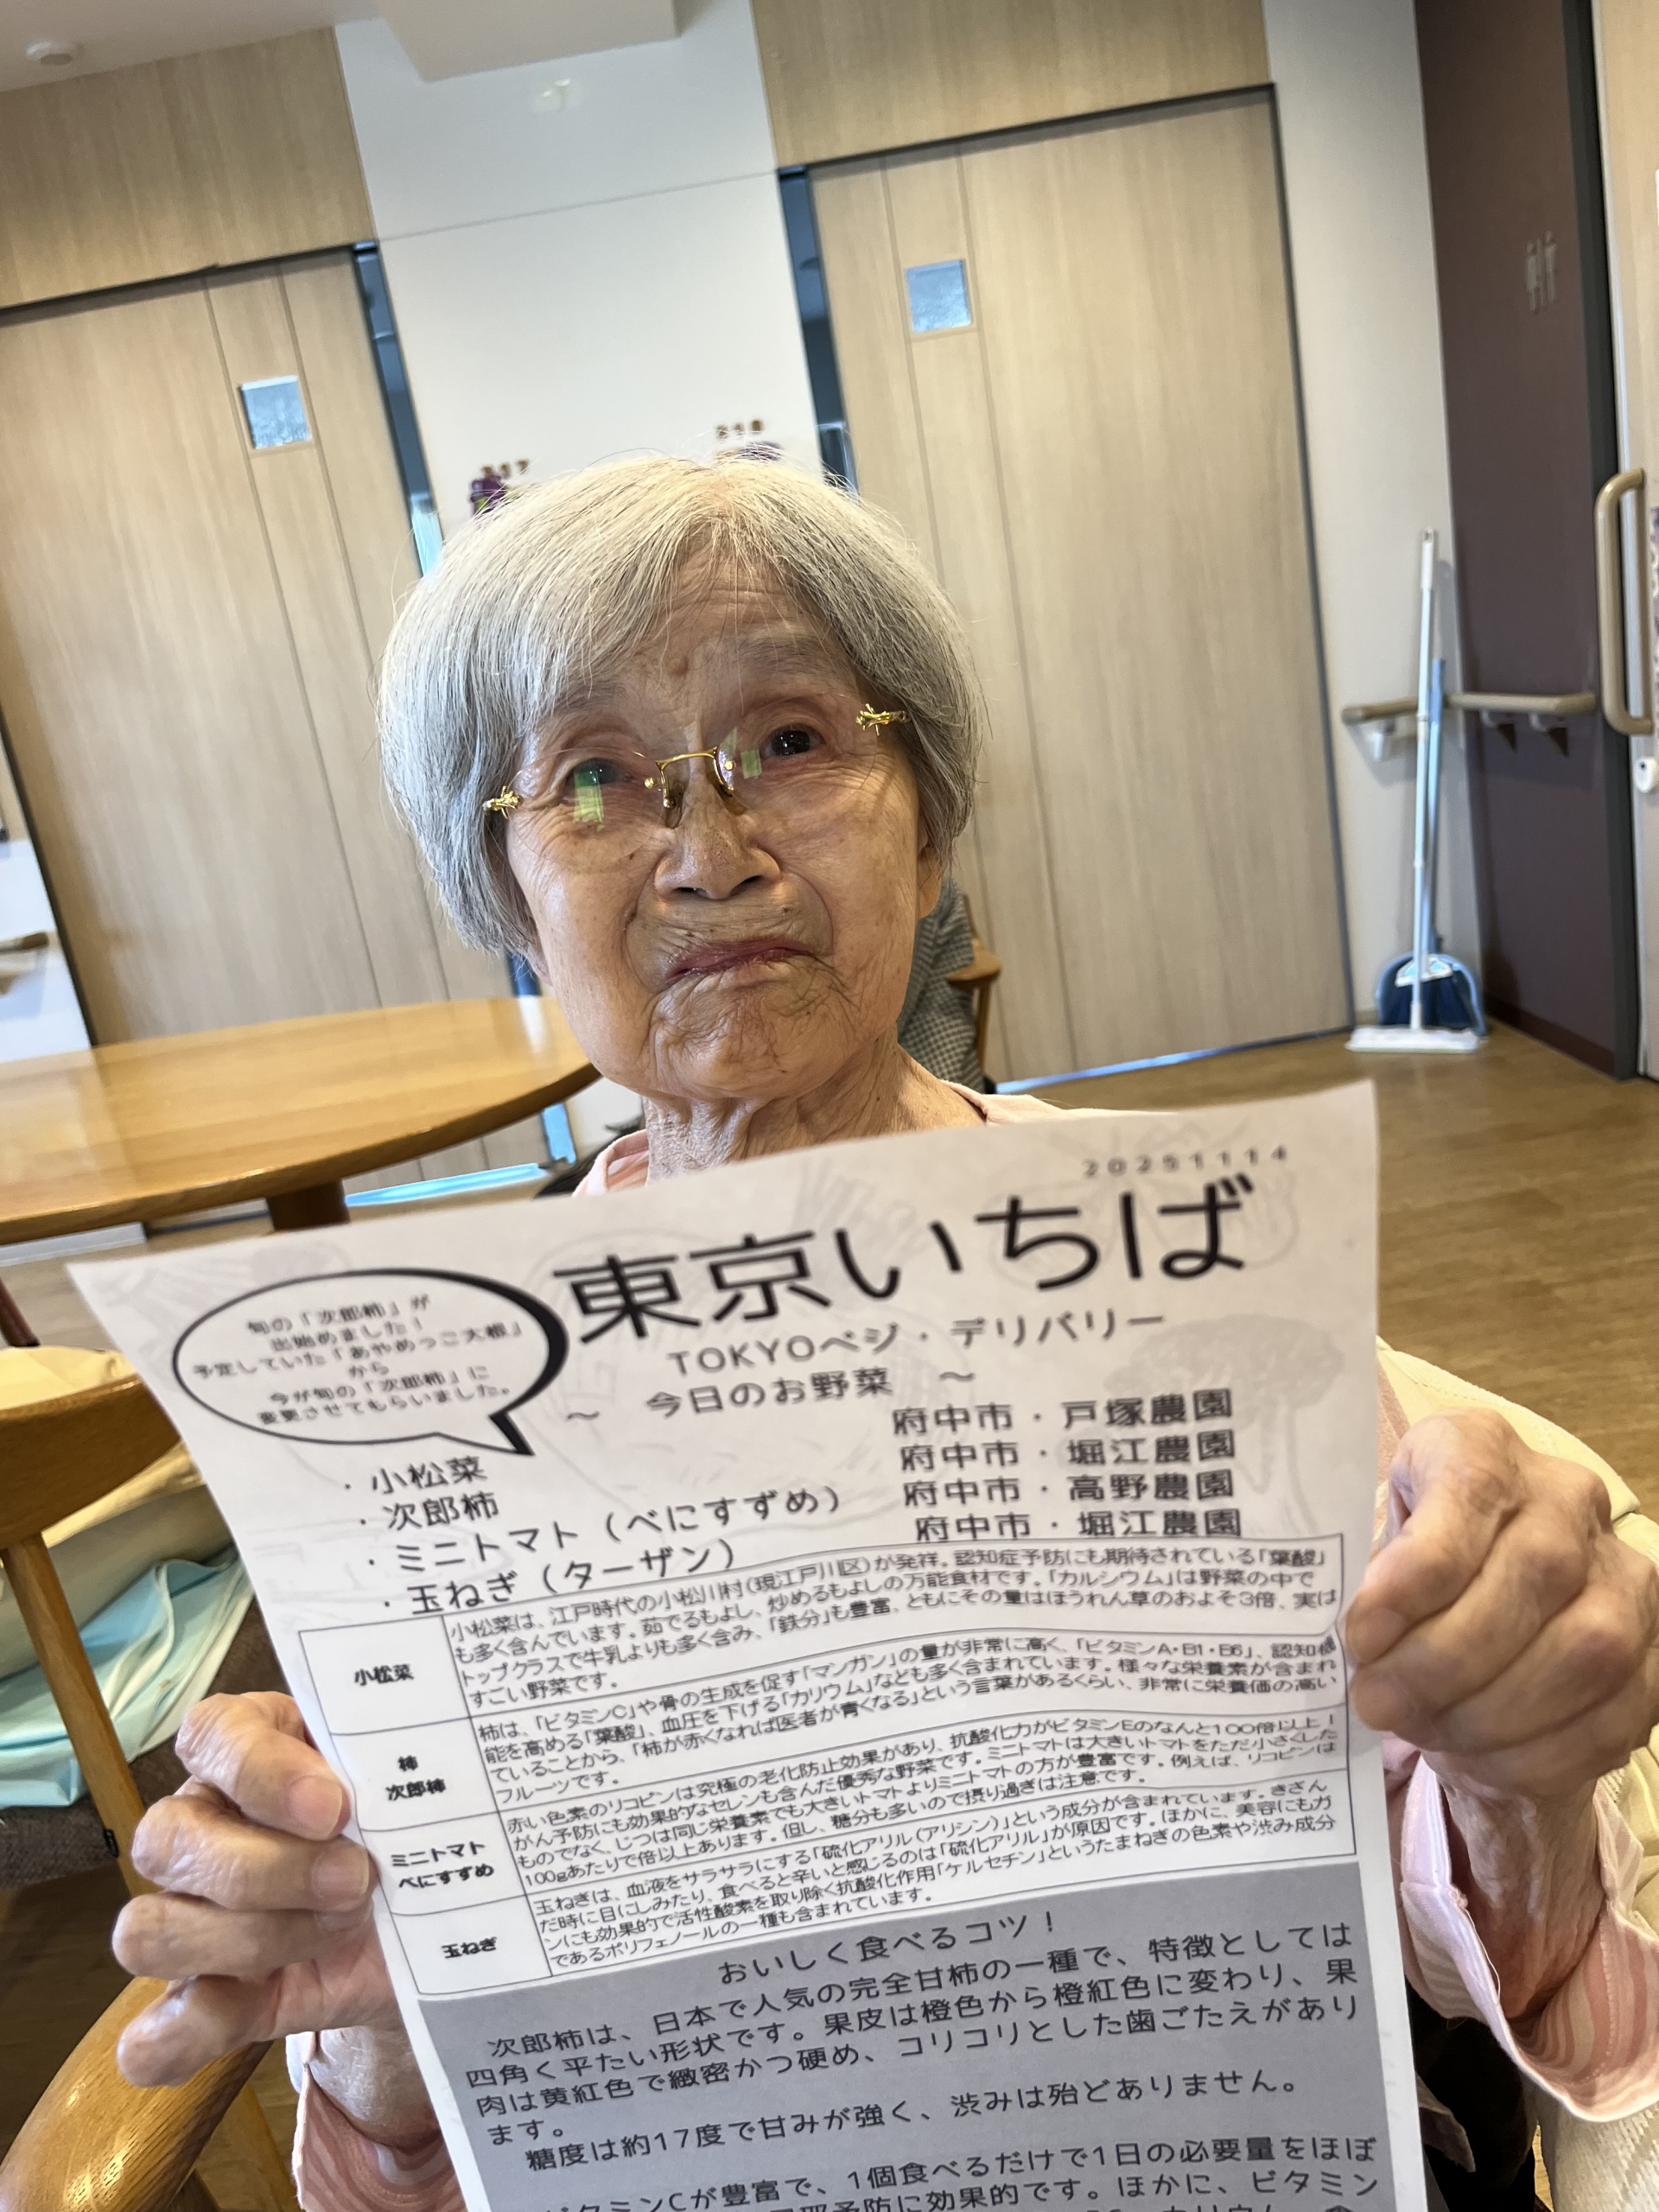 217
218
20251114
東京いちば
TOKYOベジ・デリバリー
～ 今日のお野菜 ～
旬の「次郎柿」が
出始めました！
予定していた「あやめっこ大根」
から
今が旬の「次郎柿」に
変更させてもらいました。
・小松菜 府中市・戸塚農園
・次郎柿 府中市・堀江農園
・ミニトマト（べにすずめ） 府中市・高野農園
・玉ねぎ（ターザン） 府中市・堀江農園
小松菜
小松菜は、江戸時代の小松川村（現江戸川区）が発祥。認知症予防にも期待されている「葉酸」
も多く含んでいます。茹でるもよし、炒めるもよしの万能食材です。「カルシウム」は野菜の中で
トップクラスで牛乳よりも多く含み、「鉄分」も豊富、ともにその量はほうれん草のおよそ3倍、実は
すごい野菜です。
柿
次郎柿
柿は、「ビタミンC」や骨の生成を促す「マンガン」の量が非常に高く、「ビタミンA・B1・B6」、認知機
能を高める「葉酸」、血圧を下げる「カリウム」なども多く含まれています。様々な栄養素が含まれ
ていることから、「柿が赤くなれば医者が青くなる」という言葉があるくらい、非常に栄養価の高い
フルーツです。
ミニトマト
べにすずめ
赤い色素のリコピンは究極の老化防止効果があり、抗酸化力がビタミンEのなんと100倍以上！
がん予防にも効果的なセレンも含んだ優秀な野菜です。ミニトマトは大きいトマトをただ小さくした
ものでなく、じつは同じ栄養素でも大きいトマトよりミニトマトの方が豊富です。例えば、リコピンは
100gあたりで倍以上あります。但し、糖分も多いので摂り過ぎは注意です。
玉ねぎ
玉ねぎは、血液をサラサラにする「硫化アリル（アリシン）」という成分が含まれています。きざん
だ時に目にしみたり、食べると辛いと感じるのは「硫化アリル」が原因です。ほかに、美容にもガ
ンにも効果的で活性酸素を取り除く抗酸化作用「ケルセチン」というたまねぎの色素や渋み成分
であるポリフェノールの一種も含まれています。
おいしく食べるコツ！
次郎柿は、日本で人気の完全甘柿の一種で、特徴としては
四角く平たい形状です。果皮は橙色から橙紅色に変わり、果
肉は黄紅色で緻密かつ硬め、コリコリとした歯ごたえがあり
ます。
糖度は約17度で甘みが強く、渋みは殆どありません。
ビタミンCが豊富で、1個食べるだけで1日の必要量をほぼ
予防に効果的です。ほかに、ビタミン